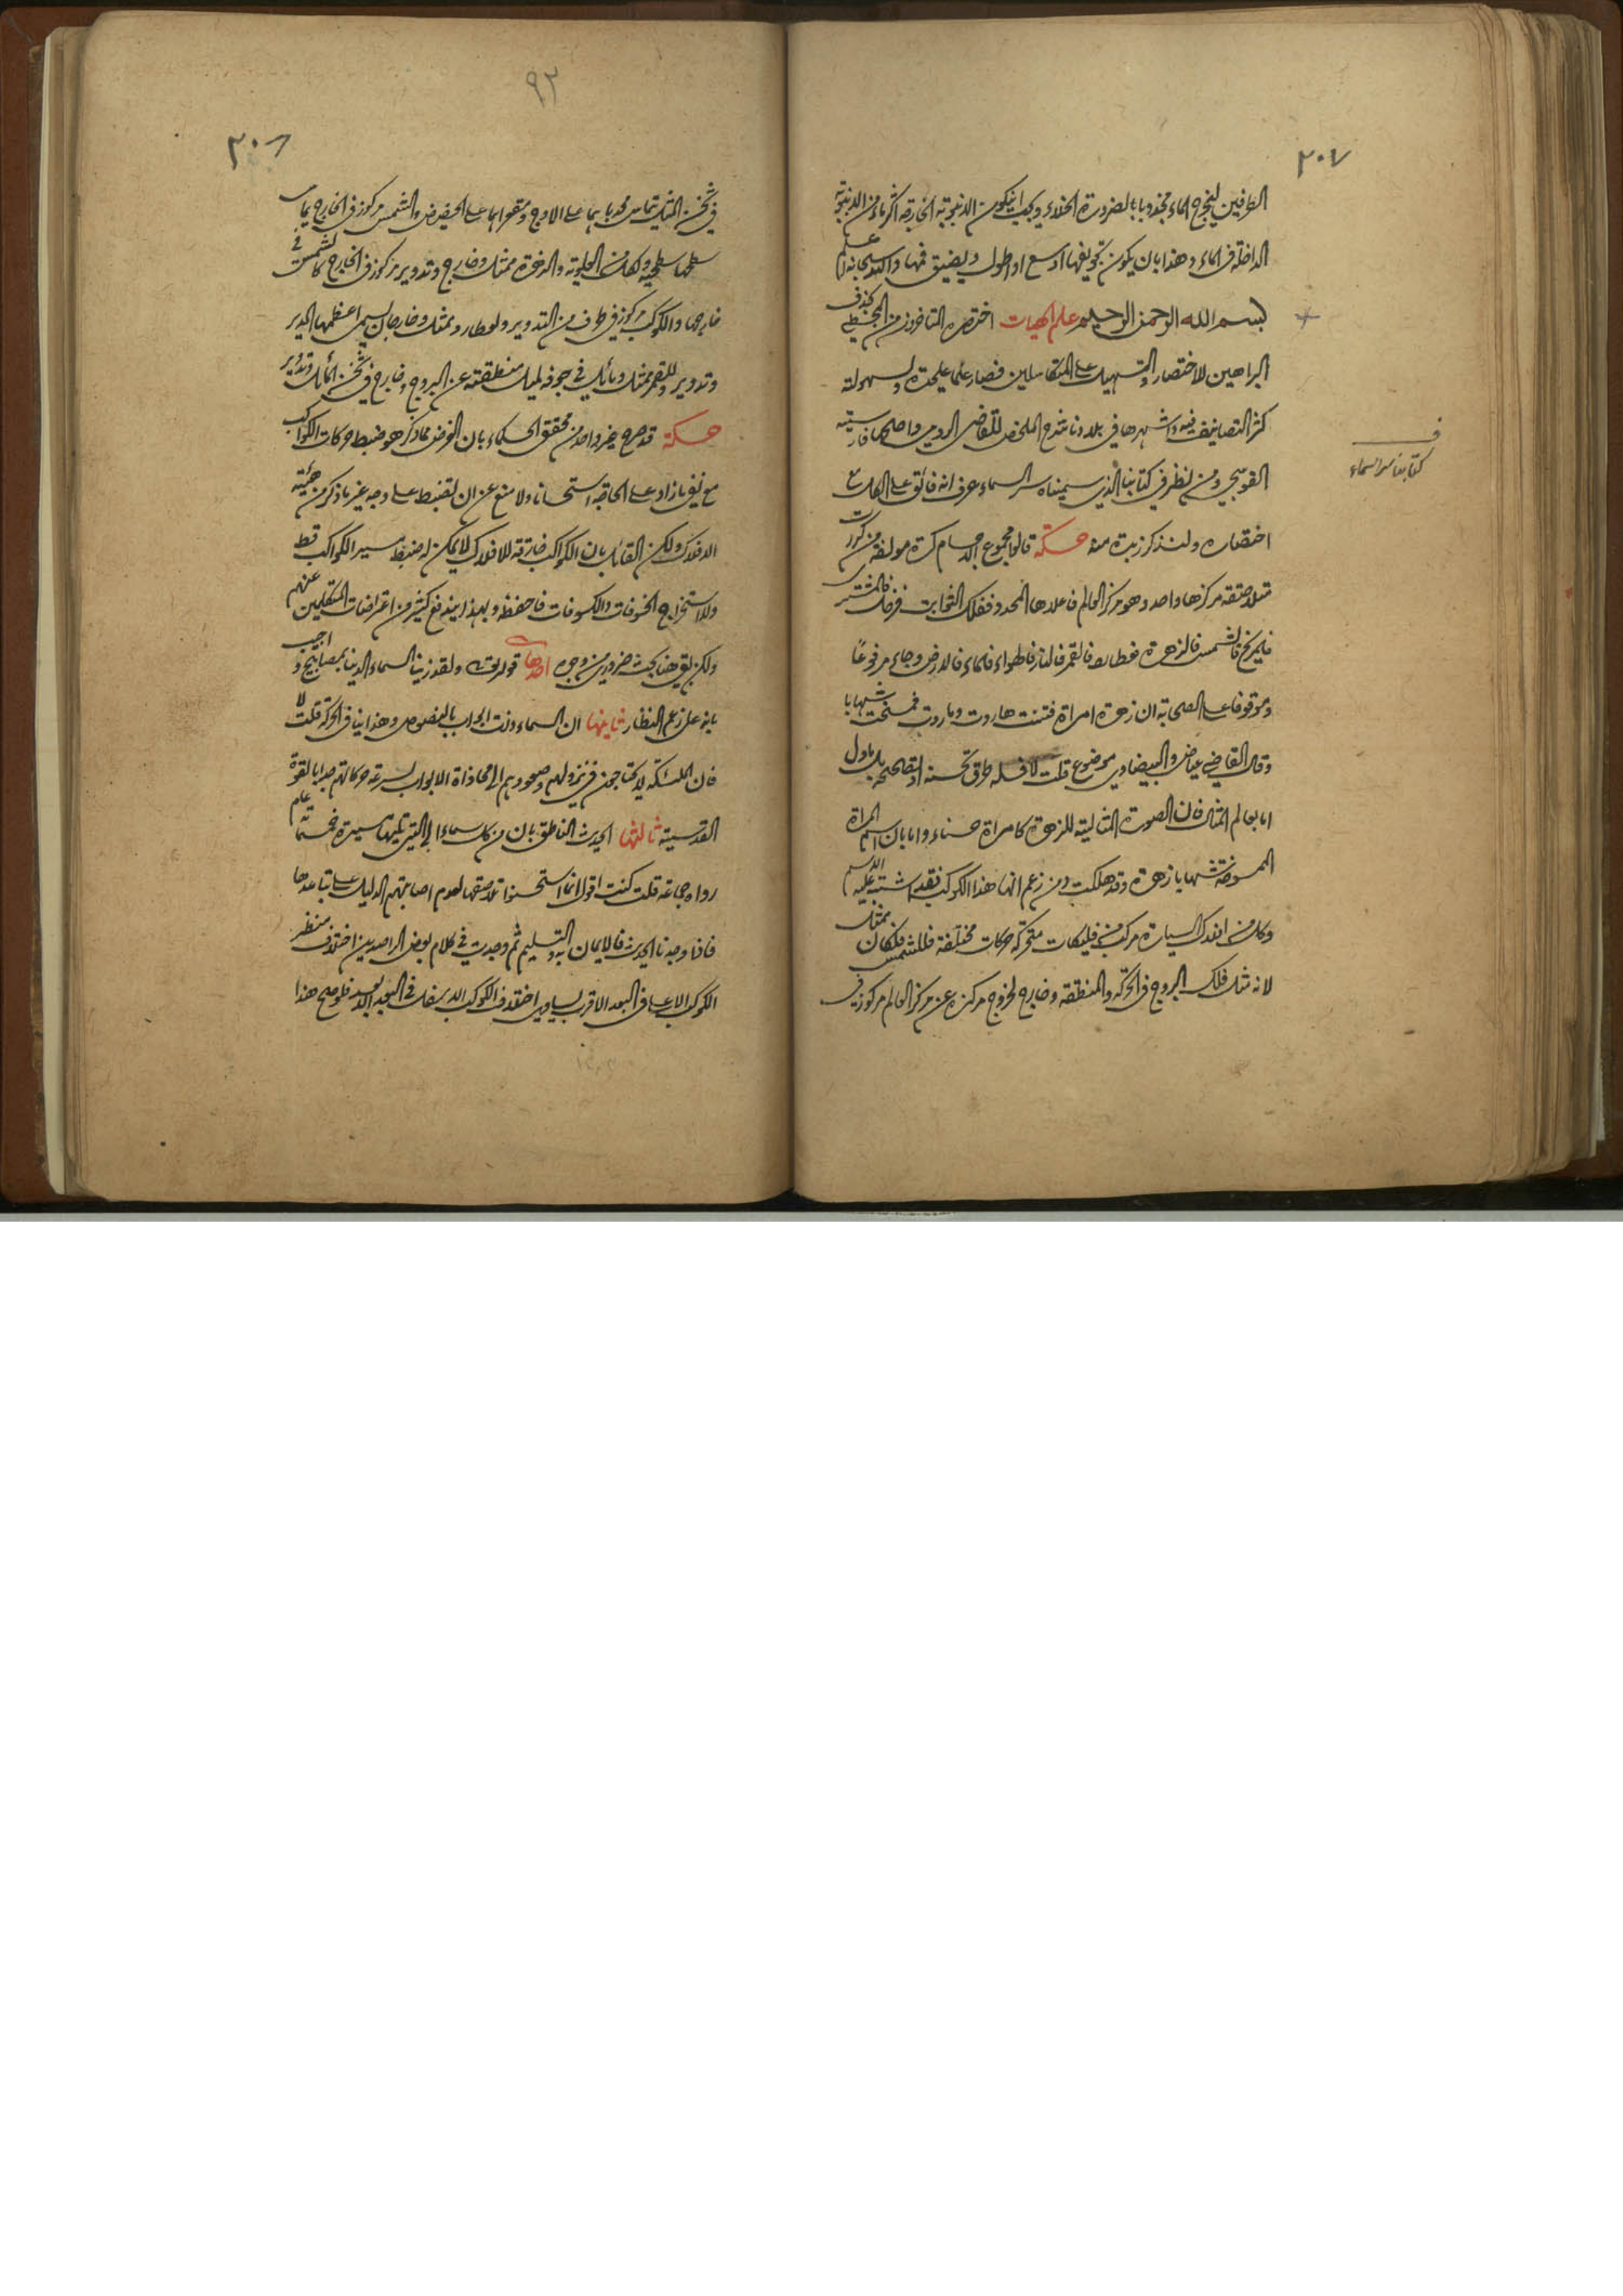 ٢٠٧
الطرفين ليخرج الماء مجذوبا بالضرورة الخلاء ويجب ان يكون الانبوبة الخارجة اكثر ماء من الانبوبة
الداخلة فى الماء وهذا بان يكون تجويفها اوسع او اطول ويضيق فمها والله سبحانه اعلم
بسم الله الرحمن الرحيم علم الهيات اختصره المتاخرون من المجسطى بحذف
البراهين للاختصار والتسهيل على المتكاسلين فصار علما عليحدة ولسهولته
كثر التصانيف فيه واشهرها فى بلادنا شرح الملخص للقاضى الرومى واصلحها فارسية
القوشجى ومن نظر فى كتابنا الذى سميناه سر السماء عرف انه فائق على الكل مع
اختصاره ولنذكر زبدة منه حكمة قالوا مجموع الاجسام كرة مولفة من كرات
متلاصقة مركزها واحد وهو مركز العالم فاعلاها المحدد ففلك الثوابت فزحل فالمشترى
فالمريخ فالشمس فالزهرة فعطارد فالقمر فالنار فالهواء فالماء فالارض وجاء مرفوعًا
وموقوفا على الصحابة ان زهرة امراة فتنت هاروت وماروت فمسخت شهابا
وقال القاضى عياض والبيضاوى موضوع قلت لا فله طرق تحسنه او تصححه بل ياول
اما بعالم المثال فان الصورة المثالية للزهرة كامراة حسناء واما بان اسم المراة
الممسوخة شهابا زهرة وقد هلكت ومن زعم انها هذا الكوكب فقد اشتبه عليه الاسم
وكل من افلاك السيارة مركب من فليكات متحركة حركات مختلفة فللشمس فلكان ممثل
لانه مثل فلك البروج فى الحركة والمنطقة وخارج لخروج مركزه عن مركز العالم مركوز فى
ف
كتابنا سر السماء
٩٢
٢٠٨
فى ثخن الممثل تماس محدباهما على الاوج ومقعراهما على الحضيض والشمس مركوز فى الخارج يماس
سطحها سطحيه ولكل من العلوية والزهرة ممثل وخارج وتدوير مركوز فى الخارج كالشمس فى
خارجها والكوكب مركوز فى طرف من التدوير ولعطارد ممثل وخارجان يسمى اعظمهما المدير
وتدوير وللقمر ممثل ومائل فى جوفه لميل منطقته عن البروج وخارج فى ثخن المائل وتدوير
حكمة قد صرح غير واحد من محققى الحكماء بان الغرض مما ذكر هو ضبط حركات الكواكب
مع نفى ما زاد على الحاجة استحسانا ولا منع عن ان تضبط على وجه غير ما ذكر من هيئية
الافلاك ولكن القائل بان الكواكب خارقة للافلاك لا يمكن له ضبط سير الكواكب قط
ولا استخراج الخسوفات والكسوفات فاحفظه وبهذا يندفع كثير من اعتراضات المتكلمين عنهم
ولكن بقى هنا بحث ضرورى من وجوه احدها قوله تعالى ولقد زينا السماء الدنيا بمصابيح و اجيب
بانه على زعم النظار ثانيها ان السماء ذات ابواب بالنصوص وهذا ينافى الحركة قلت لا
فان الملئكة لا يحتاجون فى نزولهم وصعودهم الى محاذاة الابواب لسرعة حركاتهم جدا بالقوة
القدسية ثالثها الحديث الناطق بان من كل سماء الى التى تليها مسيرة خمسمائة عام
رواه جماعة قلت كنت اقول انما استحسنوا تلاصقها لعدم اصابتهم الدليل على تباعدها
فاذا وجدنا الحديث فالايمان به والتسليم ثم وجدت فى كلام بعض الراصدين اختلاف منظر
الكوكب الاعلى فى البعد الاقرب يساوى اختلاف الكوكب الاسفل فى البعد الابعد فلو صح هذا